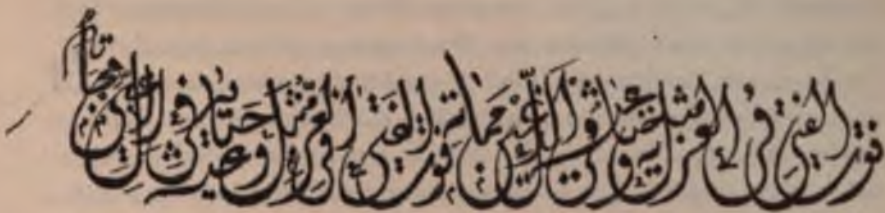 موت الفتى في العز مثل حياته وعيشته في الذل عين مماته موت الفتى في العز مثل حياته وعيشته في الذل عين مماته